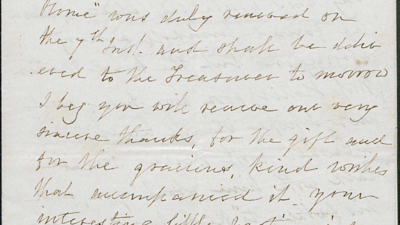 Home" was duly received on
the 7th Inst. and shall be deliv
ered to the Treasurer to morrow
I beg you will receive our very
sincere thanks, for the gift and
for the gracious, kind wishes
that accompanied it. Your
interesting little